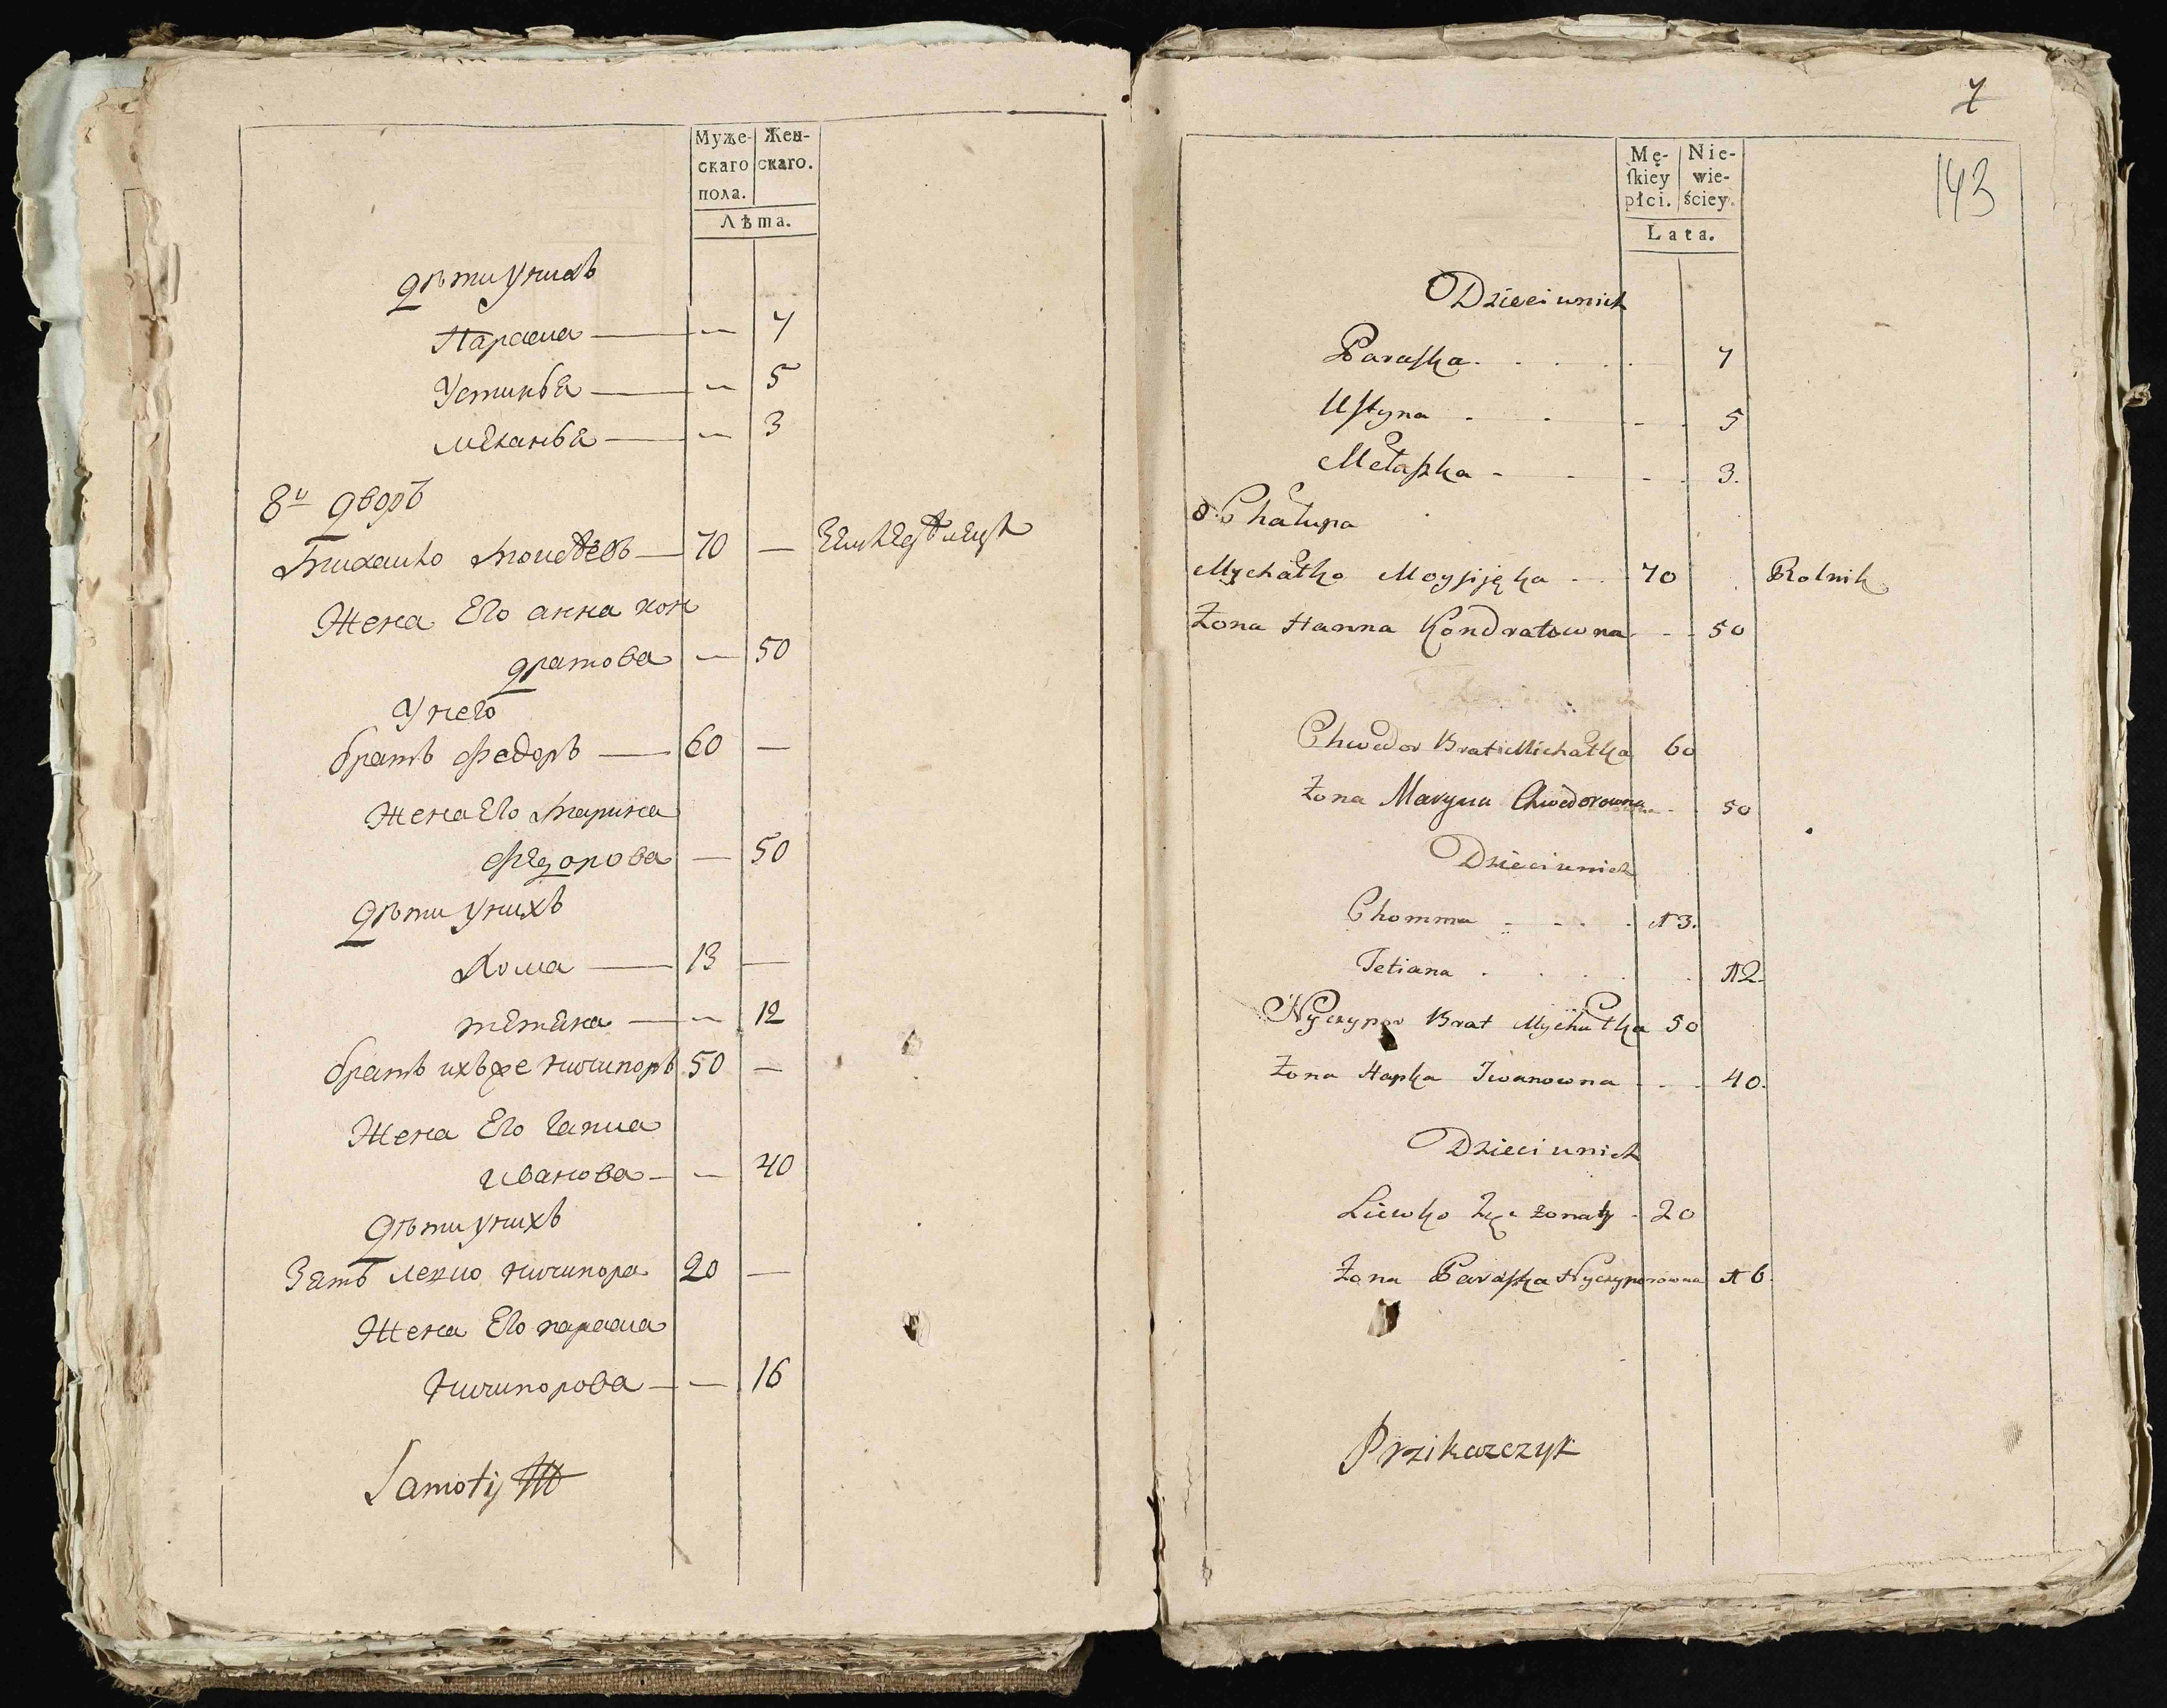 Муже-
скаго
пола.
Жен-
скаго.
Лѣта.
дѣти у нихъ
Параска — — 7
Устинья — — 5
Меланья — — 3
8й дворъ
Михайло Мойсѣевъ — 70 — Земледелецъ
Жена Его анна кон
дратова — 50
У него
братъ Федоръ — 60 —
Жена Его Марина
Федорова — 50
дѣти у нихъ
Хома — 13 —
тетяна — — 12
братъ ихъ же ничипоръ 50 —
Жена Его гапка
иванова — — 40
дѣти у нихъ
Зять левко ничипора 20 —
Жена Его параска
ничипорова — — 16
Samotij
7
143
Mę-
skiey
płci.
Nie-
wie-
ściey.
Lata.
Dzieci unich
Paraska . . . . 7
Ustyna - - - . 5
Mełaszka - - - . 3.
8 Chałupa
Mychałko Moysijęka - - 70 Rolnik
Żona Hanna Kondratowna. - - 50
Chwedor Brat Michałka 60
Żona Maryna Chwedorowna - . 50
Dzieci unich
Chomma - - - . 13.
Tetiana . . . . . 12.
Nyczypor Brat Mychałka 50
Żona Hapka Iwanowna - - - 40.
Dzieci unich
Liewko Zięc żonaty . 20
Żona Paraska Nyczyporowna 16.
Przikazczyk